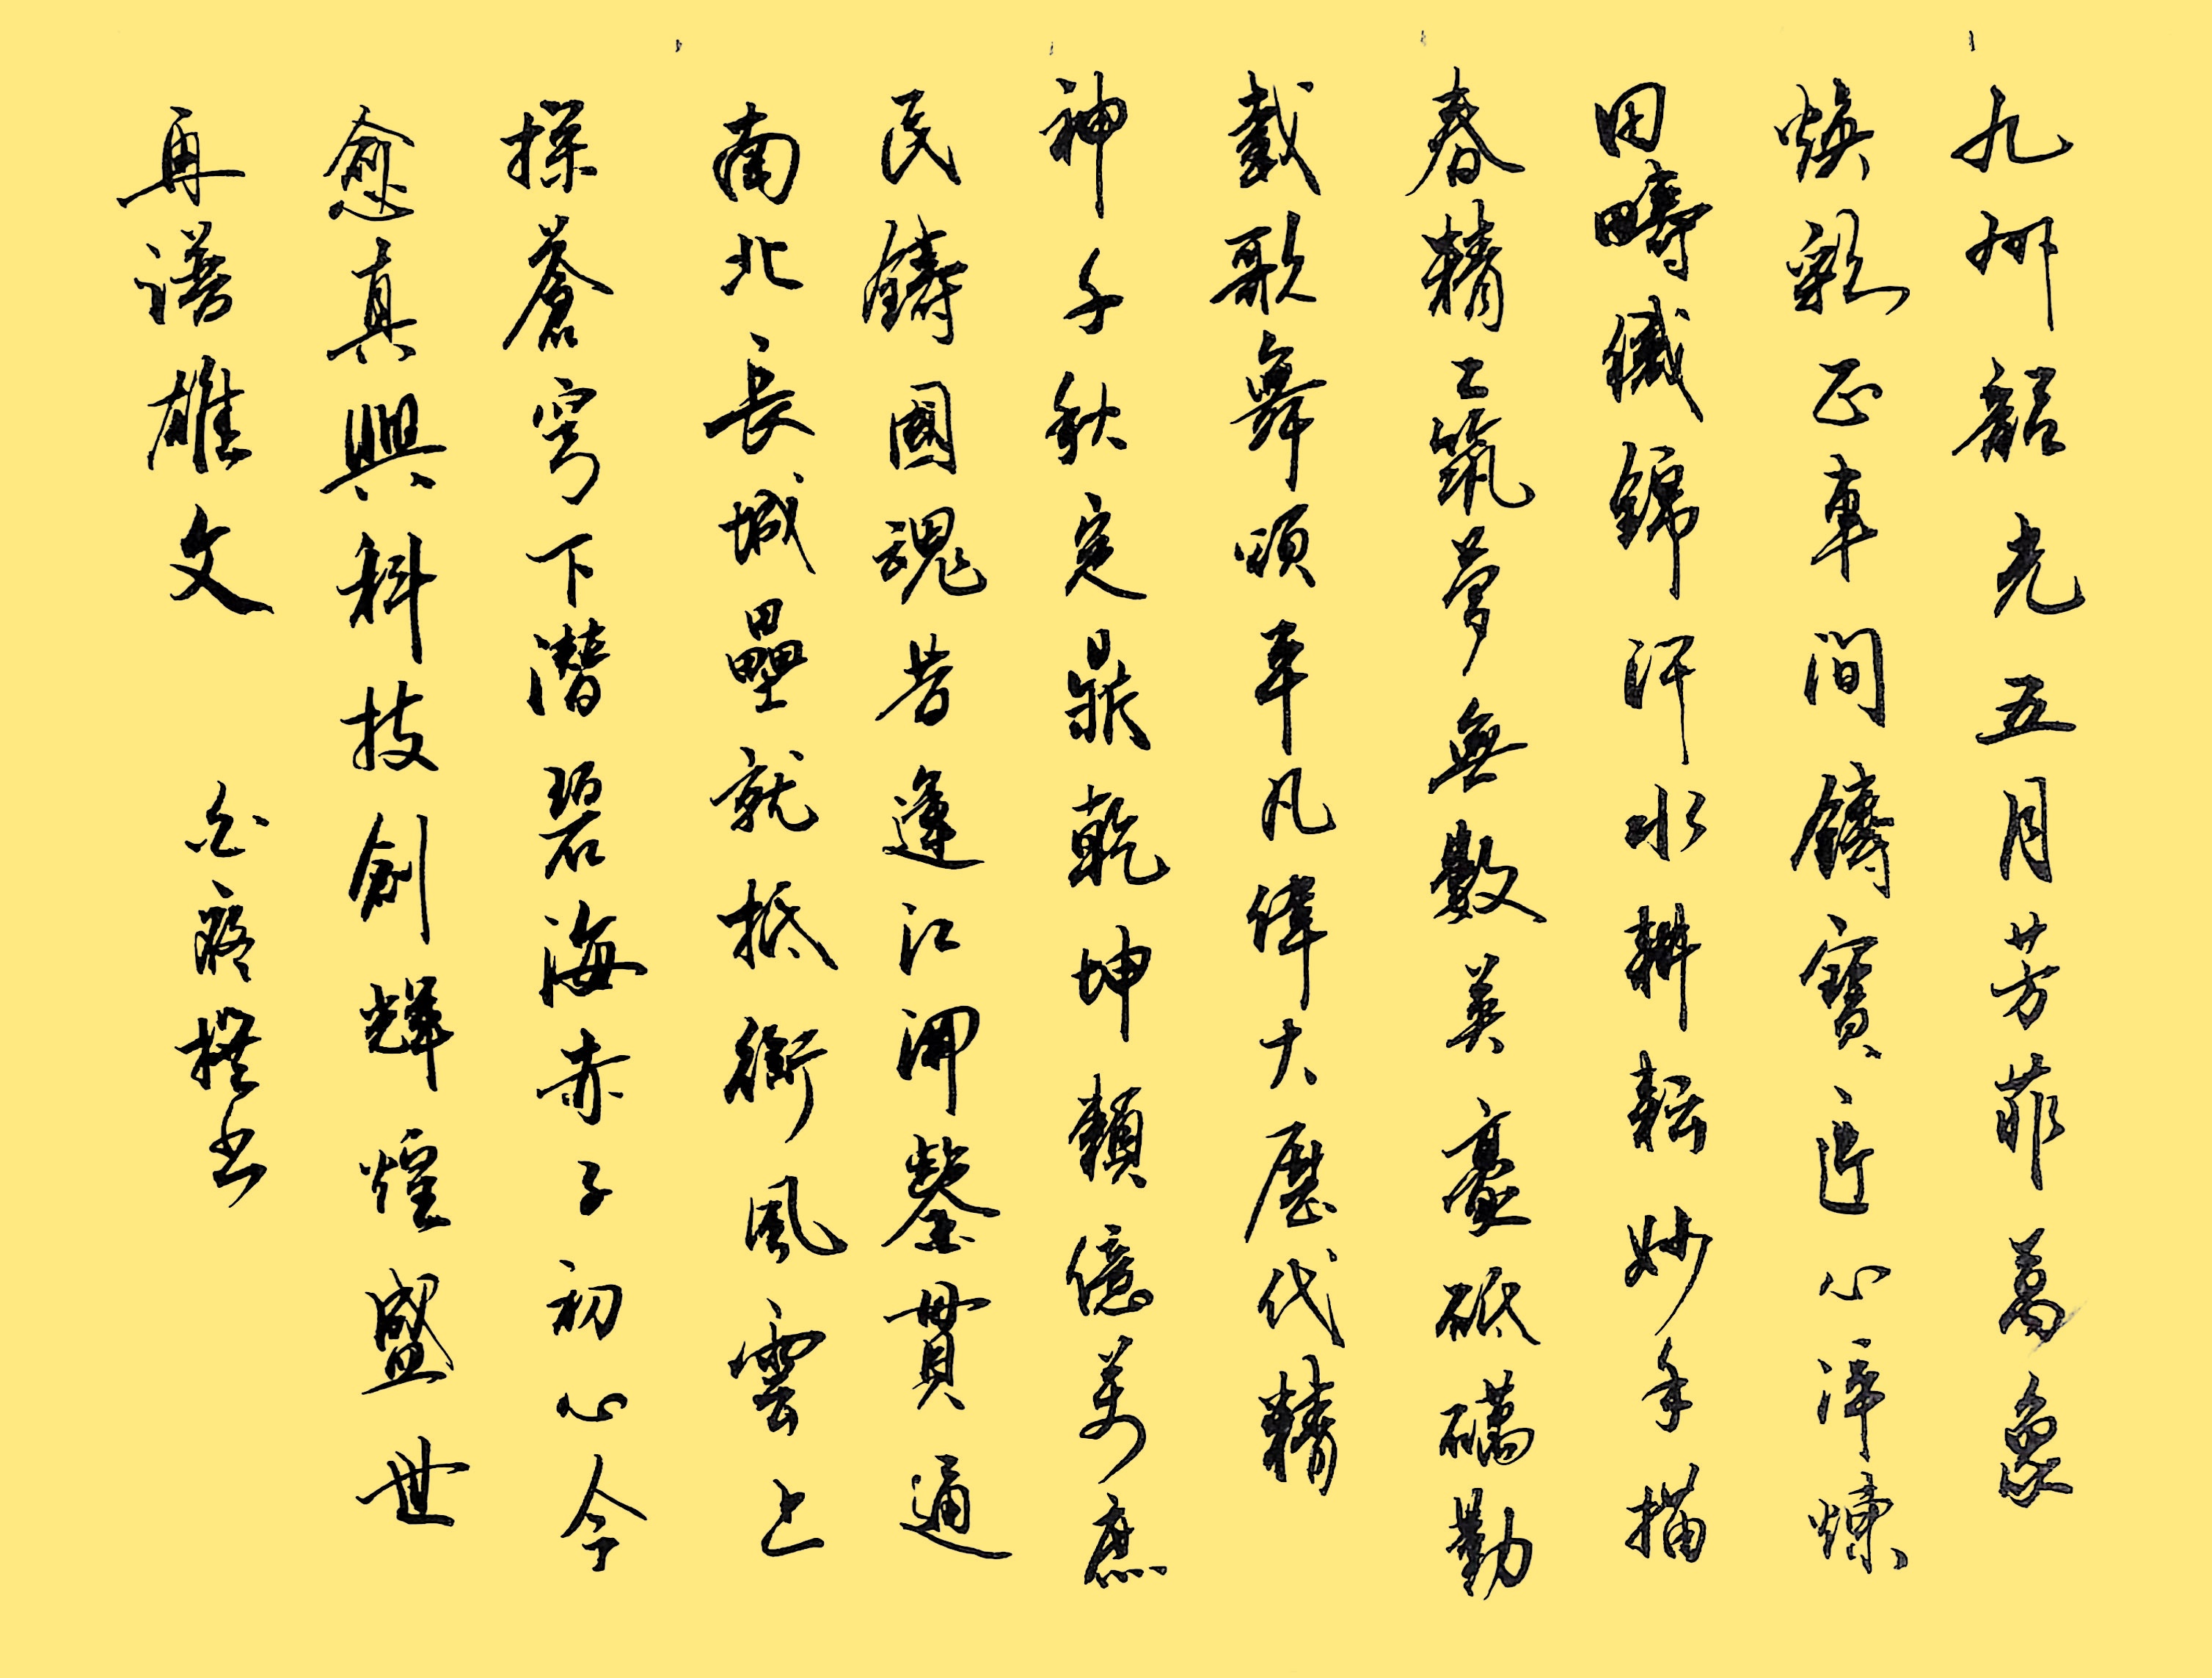 九州韶光五月芳菲萬象
煥彩正車间鑄寶匠心淬煉
田疇織錦汗水耕耘妙手描
春精工筑夢無數英豪砥礪勤
載歌舞頌平凡偉大歷代精
神千秋定鼎乾坤賴億萬庶
民鑄國魂昔逢江開鑿貫通
南北長城壘就抵御風雲上
探蒼穹下潛碧海赤子初心今
愈真興科技創輝煌盛世
再譜雄文
書